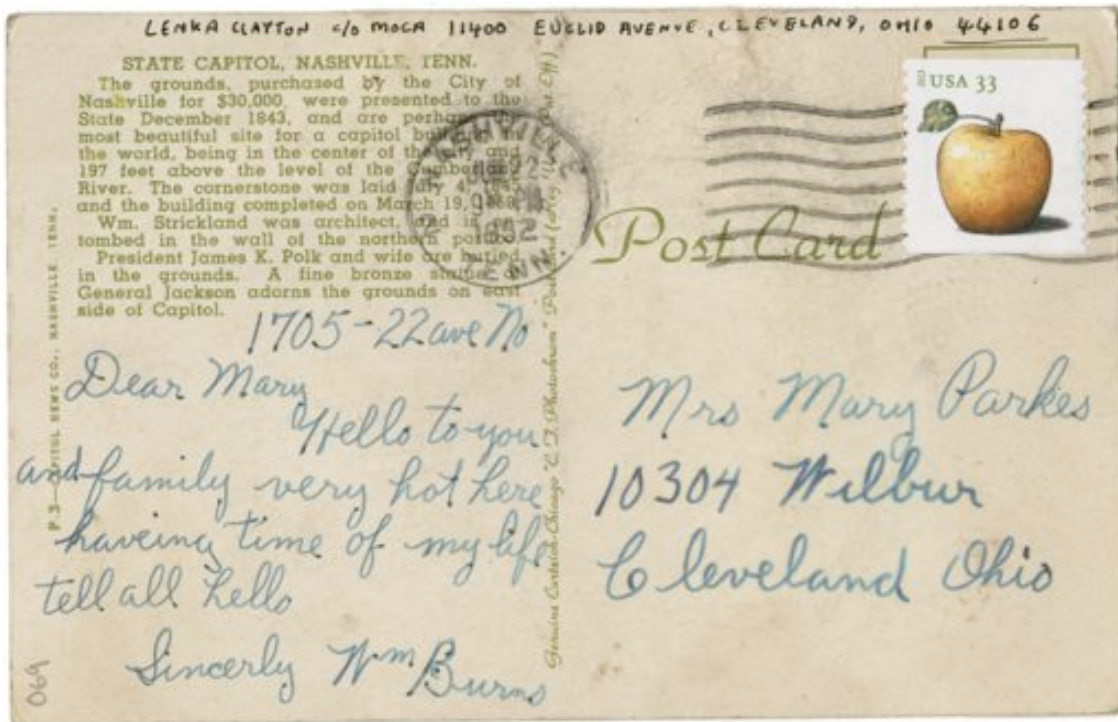 LENKA CLAYTON c/o MOCA 11400 EUCLID AVENUE, CLEVELAND, OHIO 44106
STATE CAPITOL, NASHVILLE, TENN.
The grounds, purchased by the City of
Nashville for $30,000, were presented to the
State December 1843, and are perhaps the
most beautiful site for a capitol building in
the world, being in the center of the city and
197 feet above the level of the Cumberland
River. The cornerstone was laid July 4,
and the building completed on March 19,
Wm. Strickland was architect, and is en-
tombed in the wall of the northern
President James K. Polk and wife are buried
in the grounds. A fine bronze statue of
General Jackson adorns the grounds on east
side of Capitol.
P.3—CAPITOL NEWS CO., NASHVILLE, TENN.
NASHVILLE
TENN.
USA 33
Post Card
1705-22 ave No
Dear Mary
Hello to you
and family very hot here
haveing time of my life
tell all hello
Sincerly Wm Burns
Genuine Curteich-Chicago "C.T. Photochrom" Post Card
Mrs Mary Parkes
10304 Wilbur
Cleveland Ohio
069